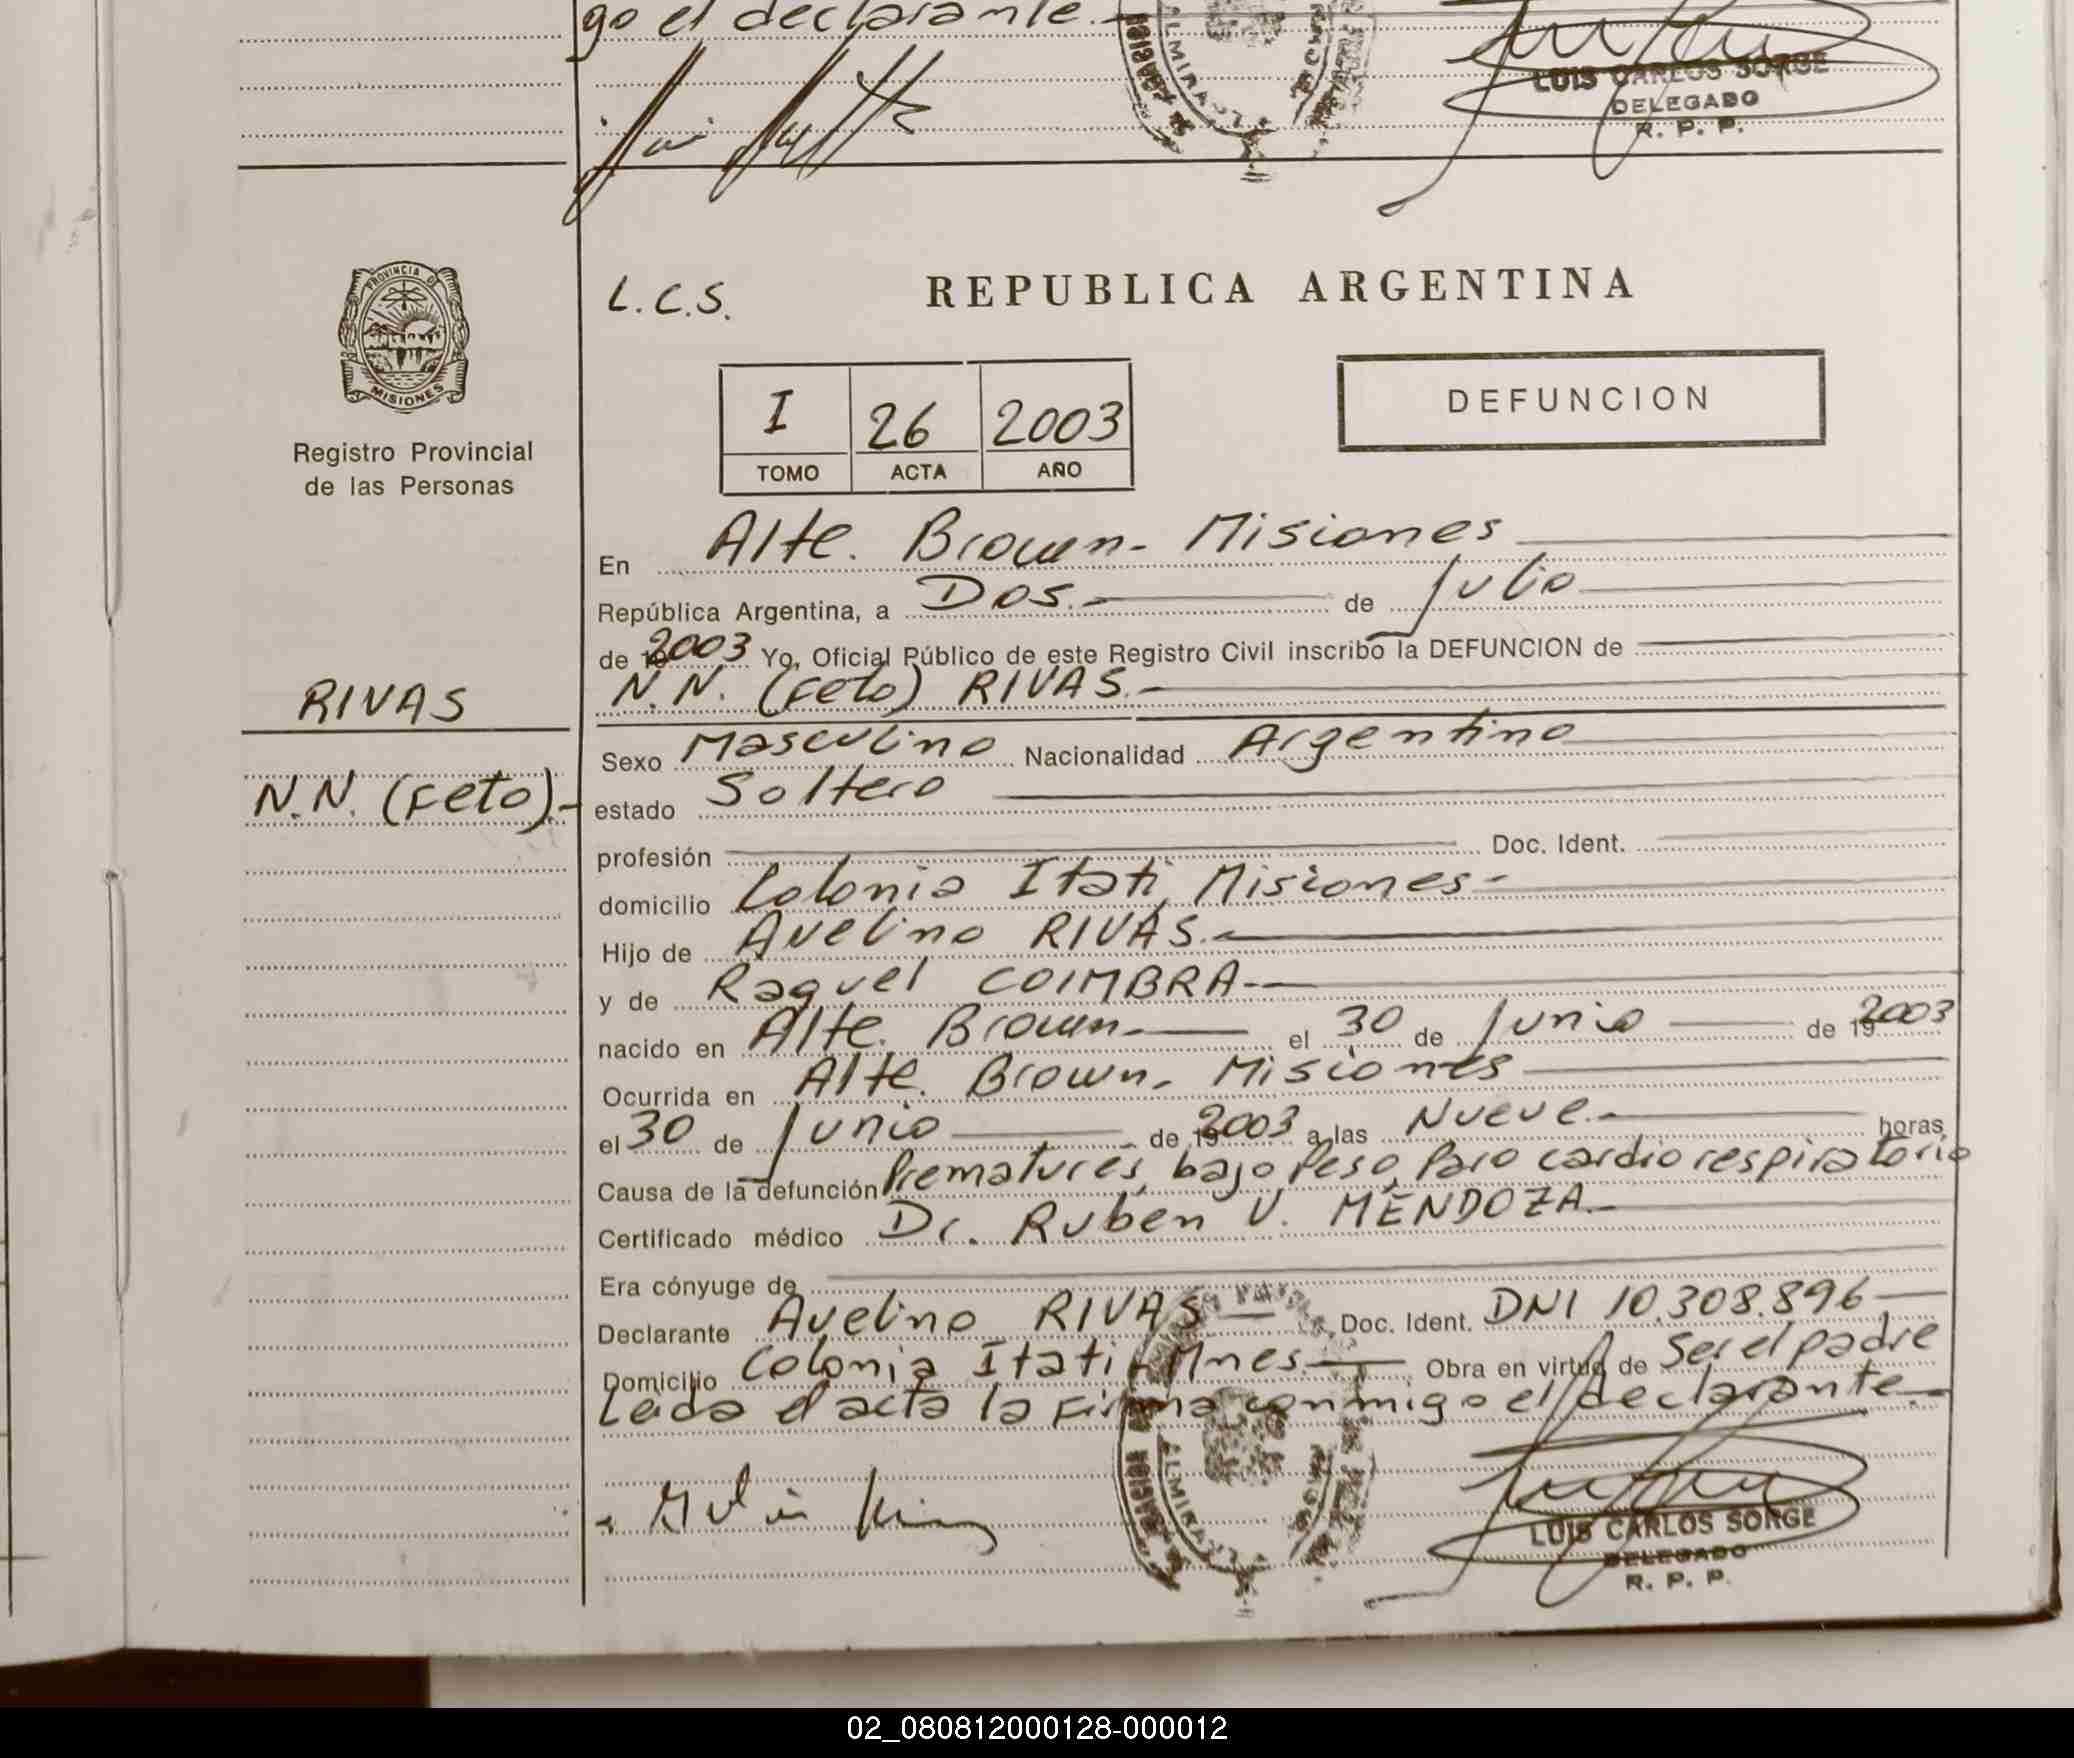 go el declarante.
LUIS CARLOS SORGE
DELEGADO
R. P. P.
PROVINCIA DE
MISIONES
Registro Provincial
de las Personas
L.C.S.
REPUBLICA ARGENTINA
I 26 2003
TOMO ACTA AÑO
DEFUNCION
En Alte. Brown - Misiones
República Argentina, a Dos. de Julio
de 2003 Yo, Oficial Público de este Registro Civil inscribo la DEFUNCION de
RIVAS
N.N. (Feto) RIVAS.
N.N. (Feto).
Sexo Masculino Nacionalidad Argentino
estado Soltero
profesión Doc. Ident.
domicilio Colonia Itati, Misiones -
Hijo de Avelino RIVAS.
y de Raquel COIMBRA
nacido en Alte. Brown el 30 de Junio de 19 2003
Ocurrida en Alte. Brown. Misiones
el 30 de Junio de 19 2003 a las Nueve. horas
Causa de la defunción Prematures, bajo Peso, Paro cardio respiratorio
Certificado médico Dr. Ruben V. MENDOZA.
Era cónyuge de
Declarante Avelino RIVAS Doc. Ident. DNI 10.308.896
Domicilio Colonia Itati - Mnes. Obra en virtud de Ser el padre
Leida el acta la firma conmigo el declarante.
LUIS CARLOS SORGE
DELEGADO
R. P. P.
02_080812000128-000012